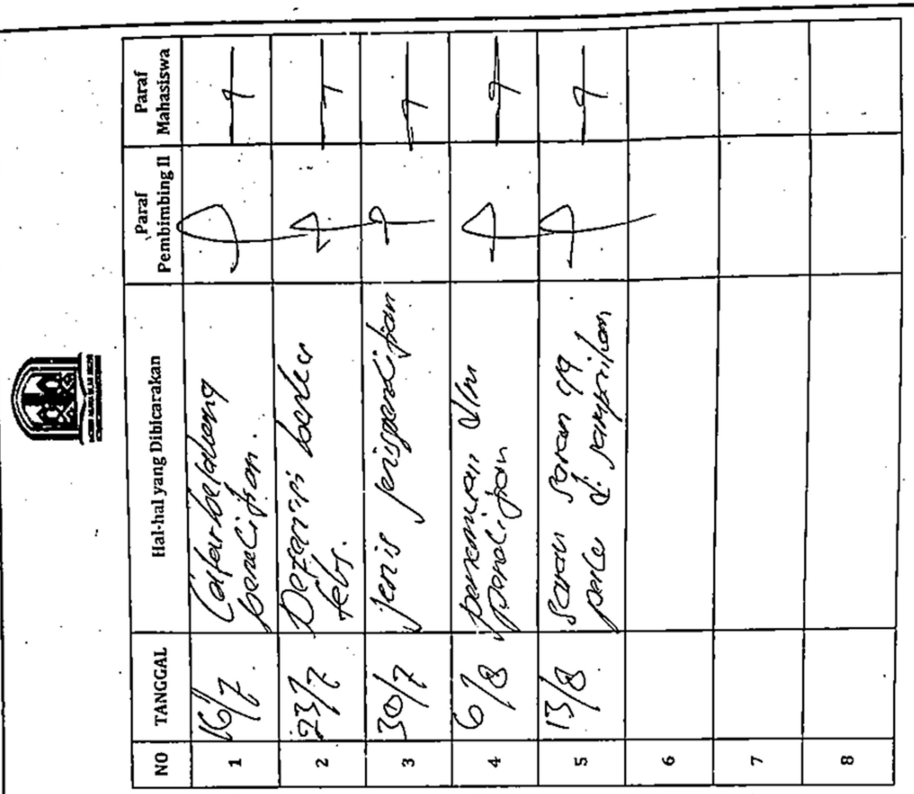 NO TANGGAL Hal-hal yang Dibicarakan Paraf Pembimbing II Paraf Mahasiswa
1 16/7 Latar belakang
penelitian.
2 23/7
3 30/7 jenis penelitian
4 6/8 dlm
penelitian
5 13/8 saran saran yg
di sampaikan
6
7
8